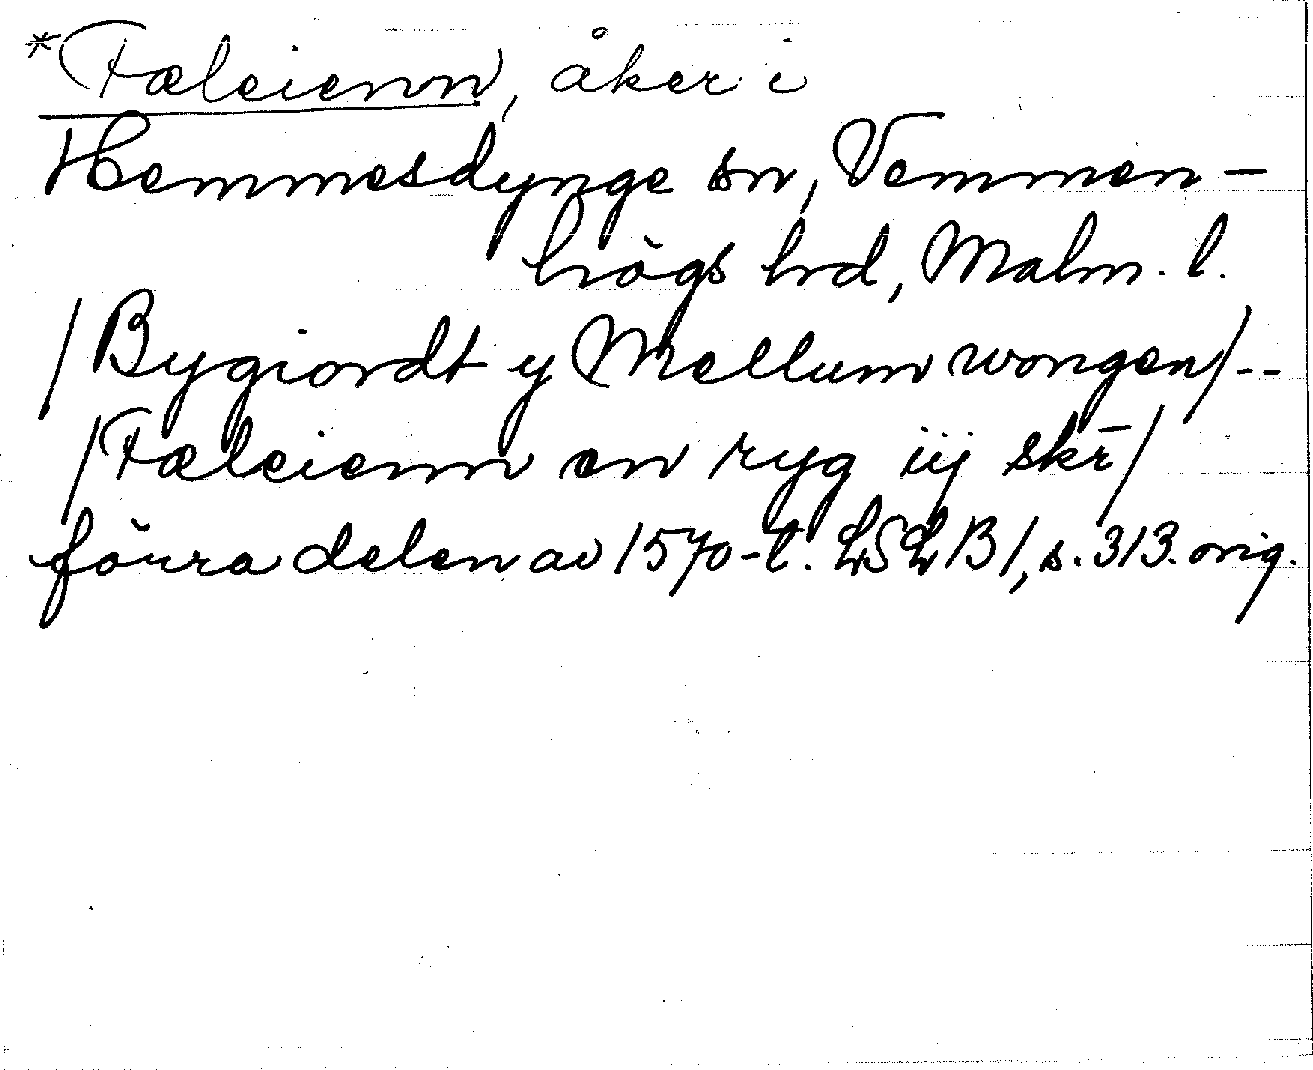 *Fæleienn, åker i
Hemmesdynge sn, Vemmen-
högs hrd, Malm. l.
/Bygiordt y Mellum wongen/--
/Fæleienn en ryg iij skr̄/
förra delen av 1570-t. LSLB1, s. 313. orig.